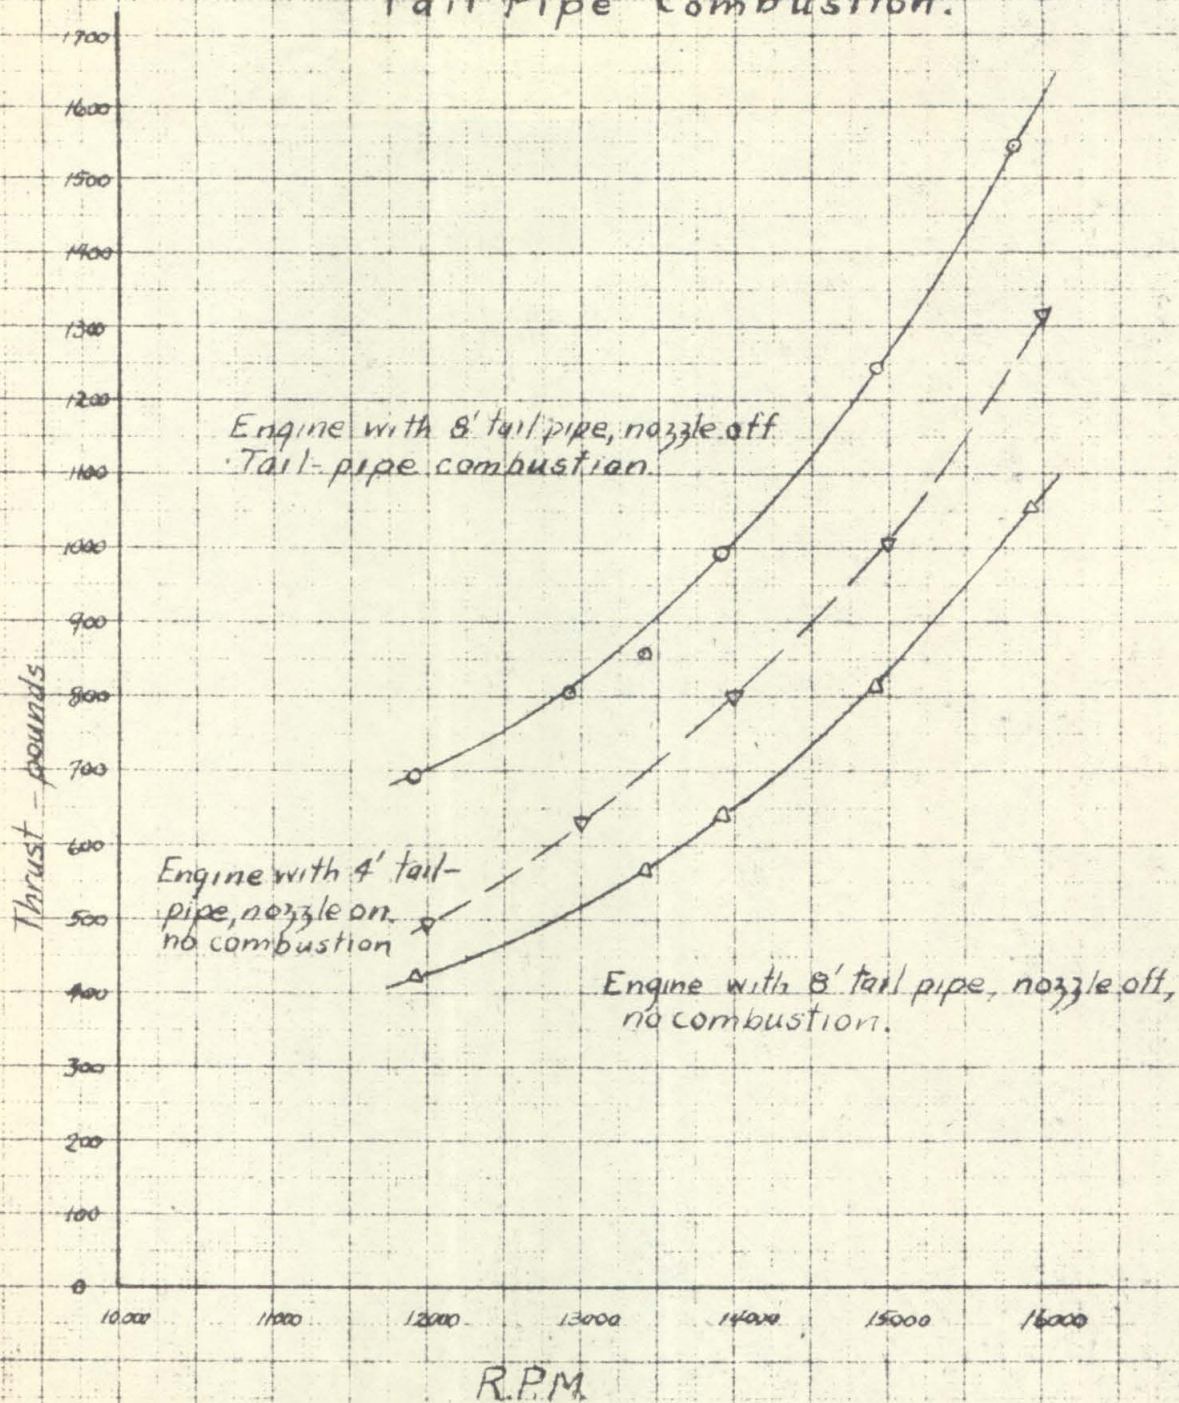 Tail Pipe Combustion.
1700
1600
1500
1400
1300
1200
1100
1000
900
800
700
600
500
400
300
200
100
0
Thrust - pounds
Engine with 8' tail pipe, nozzle off
Tail-pipe combustion.
Engine with 4' tail-
pipe, nozzle on.
no combustion
Engine with 8' tail pipe, nozzle off,
no combustion.
10000 11000 12000 13000 14000 15000 16000
R.P.M.